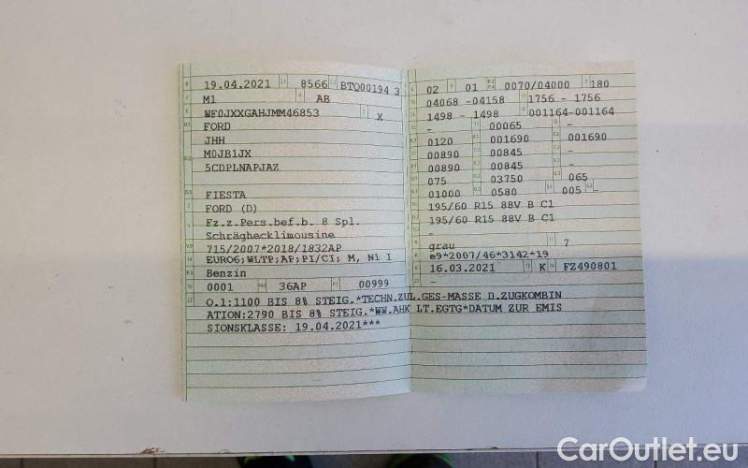 19.04.2021 8566 BTQ00194 3
M1 AB
WF0JXXGAHJMM46853 X
FORD
JHH
M0JB1JX
5CDPLNAPJAZ
FIESTA
FORD (D)
Fz.z.Pers.bef.b. 8 Spl.
Schräghecklimousine
715/2007*2018/1832AP
EURO6;WLTP;AP;PI/CI; M, N1 I
Benzin
0001 36AP 00999
02 01 0070/04000 180
04068 -04158 1756 - 1756
1498 - 1498 001164-001164
- 00065 -
0120 001690 001690
00890 00845 -
00890 00845 -
075 03750 065
01000 0580 005 -
195/60 R15 88V B C1
195/60 R15 88V B C1
-
grau 7
e9*2007/46*3142*19
16.03.2021 K FZ490801
-
O.1:1100 BIS 8% STEIG.*TECHN.ZUL.GES-MASSE D.ZUGKOMBIN
ATION:2790 BIS 8% STEIG.*WW.AHK LT.EGTG*DATUM ZUR EMIS
SIONSKLASSE: 19.04.2021***
CarOutlet.eu